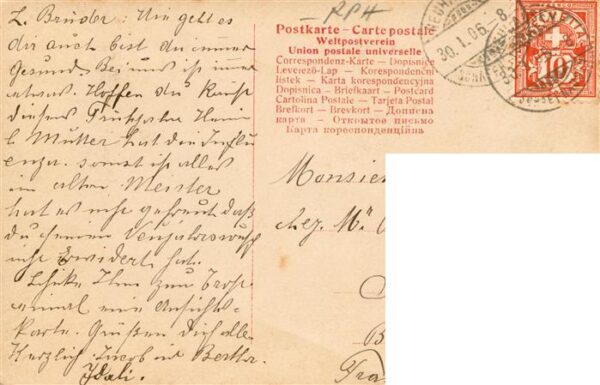 L. Bruder. Wie geht es
dir auch bist du immer
Gesund. Bei uns ist immer
etwas. Hoffen du kannst
diesen Frühjahr Heim
l. Mutter hat die Influ
enza. sonst ist alles
im alten. Meister
hat es sehr gefreut daß
du seinen Neujahrswusch
erwidert hat.
Schike Ihm zum Trost
einmal eine Ansichts-
karte. Grüßen dich alle
Herzlich Jacob und Bertha.
RPH
Postkarte - Carte postale
Weltpostverein
Union postale universelle
Correspondenz-Karte – Dopisnice
Levelező-Lap – Korespondenční
listek – Karta korespondencyjna
Dopisnica – Briefkaart – Postcard
Cartolina Postale – Tarjeta Postal
Brefkort – Brevkort – Дописна
карта – Открытое письмо
Карта кореспонденційна
30.1.06.-8
HELVETIA
10
Monsieur
chez Mr